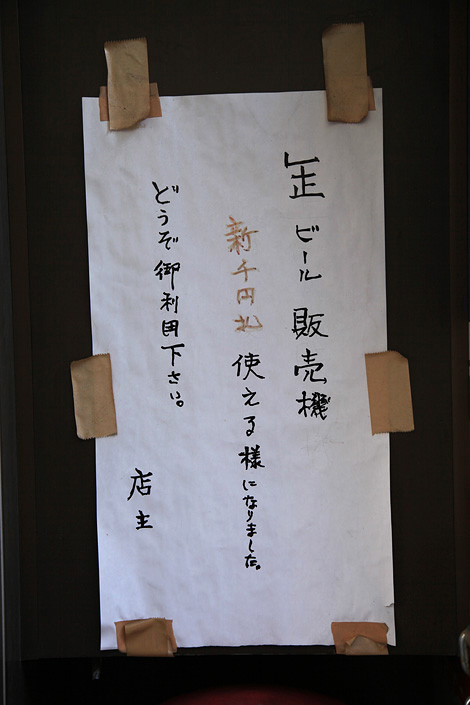 ビール 販売機
新千円札 使える様になりました。
どうぞ御利用下さい。
店主